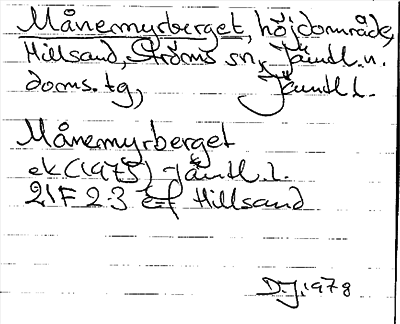 Månemyrberget, höjdområde,
Hillsand, Ströms sn, Jämtl. n.
doms. tg, Jämtl l.
Månemyrberget
ek (1975) Jämtl. l.
21F 2-3 ef Hillsand
D.J. 1978